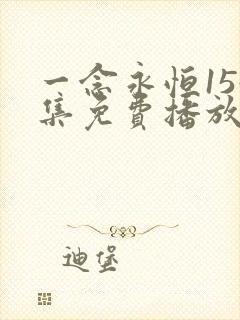 一念永恒15
集免费播放
迪堡